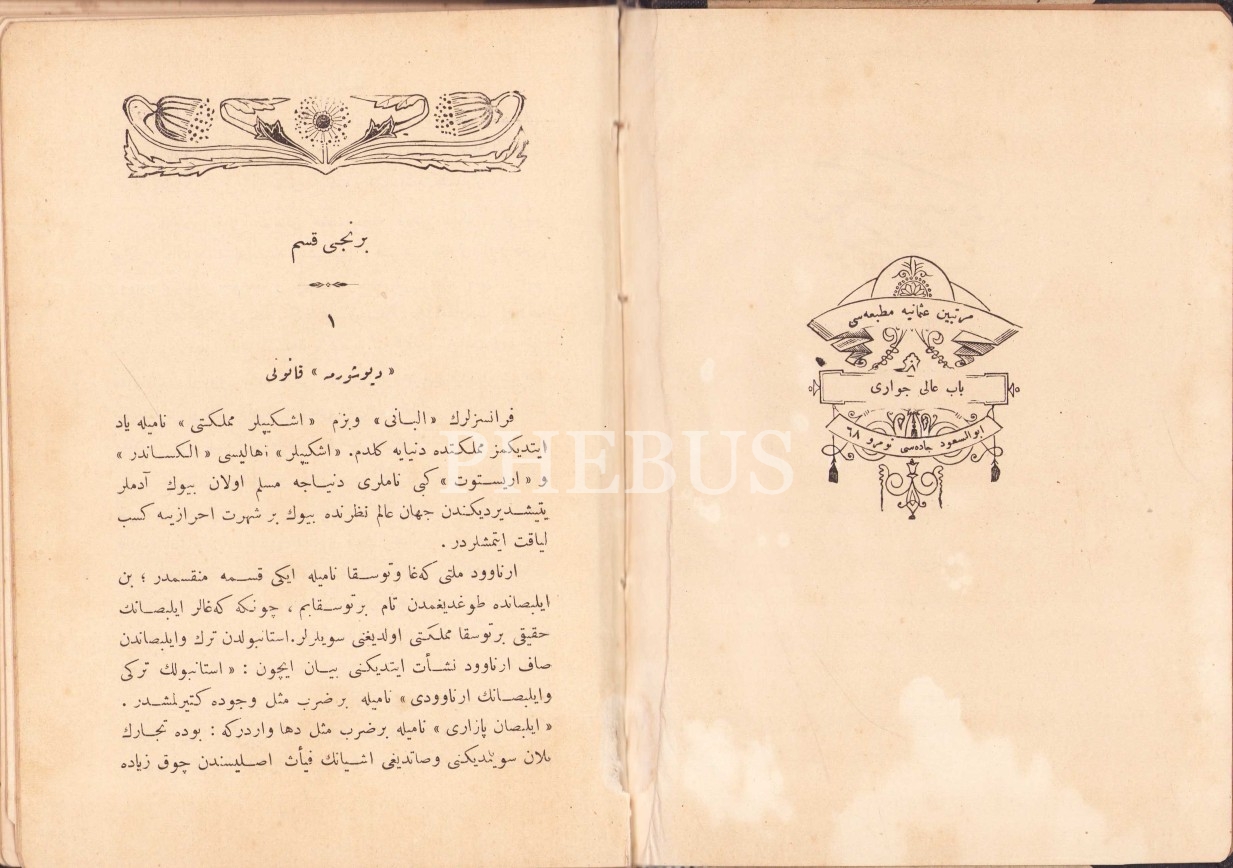 مرتبین عثمانیه مطبعه‌سی
باب عالی جواری
ابوالسعود جاده‌سی نومرو ٦٨
برنجی قسم
١
« دیوشورمه » قانونی
فرانسزلرك «البانی» وبزم «اشكیپلر مملكتی» نامیله یاد
ایتدیكمز مملكتده دنیایه كلدم. «اشكیپلر» اهالیسی «الكساندر»
و «اریستوت» كبی ناملری دنیاجه مسلم اولان بیوك آدملر
یتیشدیردیكندن جهان عالم نظرنده بیوك بر شهرت احرازینه كسب
لیاقت ایتمشلردر .
ارناوود ملتی كه‌غا وتوسقا نامیله ایكی قسمه منقسمدر ؛ بن
ایلبصانده طوغدیغمدن تام برتوسقایم ، چونكه كه‌غالر ایلبصانك
حقیقی برتوسقا مملكتی اولدیغنی سویلرلر.استانبولدن ترك وایلبصاندن
صاف ارناوود نشأت ایتدیكنی بیان ایچون : « استانبولك تركی
وایلبصانك ارناوودی » نامیله برضرب مثل وجوده كتیرلمشدر .
« ایلبصان پازاری » نامیله برضرب مثل دها واردركه : بوده تجارك
یلان سویلدیكنی وصاتدیغی اشیانك فیأت اصلیسندن چوق زیاده
PHEBUS